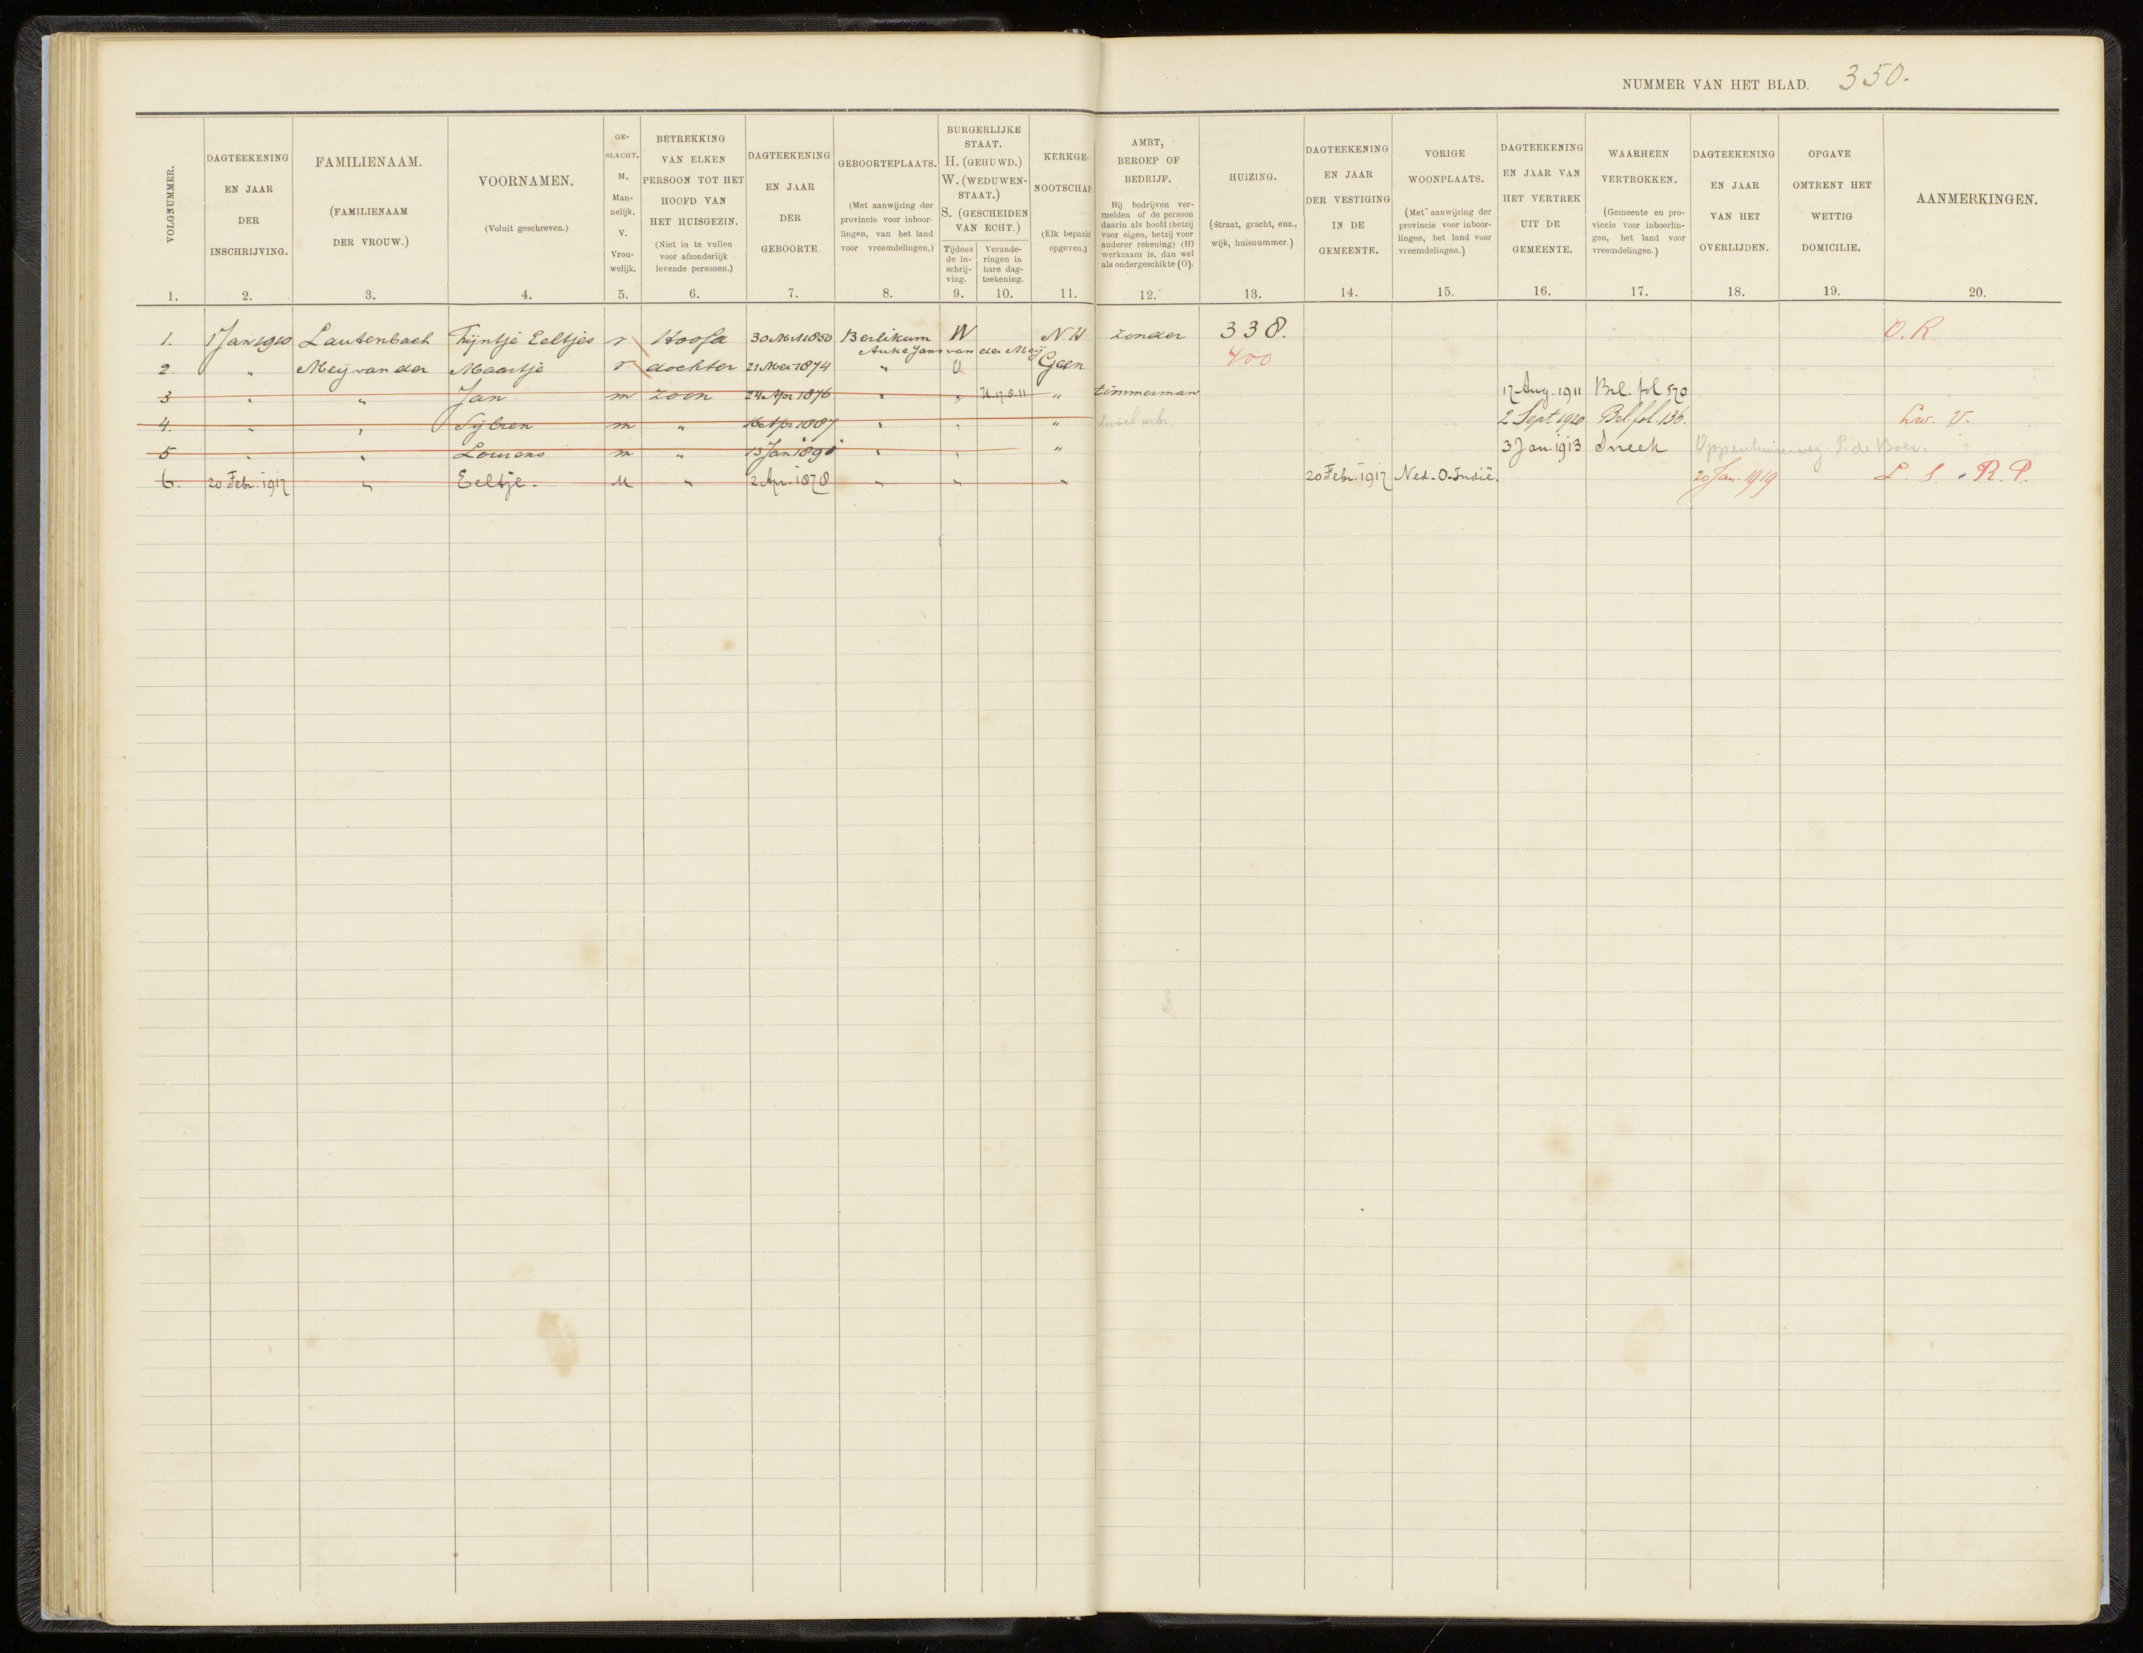 NUMMER VAN HET BLAD. 350.
VOLGNUMMER. 1.
DAGTEEKENING EN JAAR DER INSCHRIJVING. 2.
FAMILIENAAM. (FAMILIENAAM DER VROUW.) 3.
VOORNAMEN. (Voluit geschreven.) 4.
GE-SLACHT. M. Man-nelijk. V. Vrou-welijk. 5.
BETREKKING VAN ELKEN PERSOON TOT HET HOOFD VAN HET HUISGEZIN. (Niet in te vullen voor afzonderlijk levende personen.) 6.
DAGTEEKENING EN JAAR DER GEBOORTE. 7.
GEBOORTEPLAATS. (Met aanwijzing der provincie voor inboor-lingen, van het land voor vreemdelingen.) 8.
BURGERLIJKE STAAT. H. (GEHUWD.) W. (WEDUWEN-STAAT.) S. (GESCHEIDEN VAN ECHT.)
Tijdens de in-schrij-ving. 9.
Verande-ringen in hare dag-teekening. 10.
KERKGE-NOOTSCHAP. (Elk bepaald opgeven.) 11.
AMBT, BEROEP OF BEDRIJF. Bij bedrijven ver-melden of de persoon daarin als hoofd (hetzij voor eigen, hetzij voor anderer rekening) (H) werkzaam is, dan wel als ondergeschikte (O). 12.
HUIZING. (Straat, gracht, enz., wijk, huisnummer.) 13.
DAGTEEKENING EN JAAR DER VESTIGING IN DE GEMEENTE. 14.
VORIGE WOONPLAATS. (Met aanwijzing der provincie voor inboor-lingen, het land voor vreemdelingen.) 15.
DAGTEEKENING EN JAAR VAN HET VERTREK UIT DE GEMEENTE. 16.
WAARHEEN VERTROKKEN. (Gemeente en pro-vincie voor inboorlin-gen, het land voor vreemdelingen.) 17.
DAGTEEKENING EN JAAR VAN HET OVERLIJDEN. 18.
OPGAVE OMTRENT HET WETTIG DOMICILIE. 19.
AANMERKINGEN. 20.
1. 1 Jan 1910 Lautenbach Tijntje Eeltjes v Hoofd 30 Mrt 1850 Berlikum W N.H zonder 338. O.R.
Auke Jans van der Meij
2 " Meij van der Maartje v dochter 21 Mei 1874 " O Geen 400
3 " " Jan m zoon 24 Apr 1876 " " H 17-8-11 " timmerman 17 Aug. 1911 Brl. fol 570
4. " " Sijbren m " 16 Apr 1887 " " " 2 Sept 1920 Brl. fol. 136.
5 " " Lourens m " 13 Jan 1890 " " " 3 Jan. 1913 Sneek Oppenhuizerweg P. de Boer.
6. 20 Febr. 1917 " Eeltje. M " 2 Apr. 1878 " " " 20 Febr. 1917 Ned. O. Indië. 20 Jan. 1919 R. P.